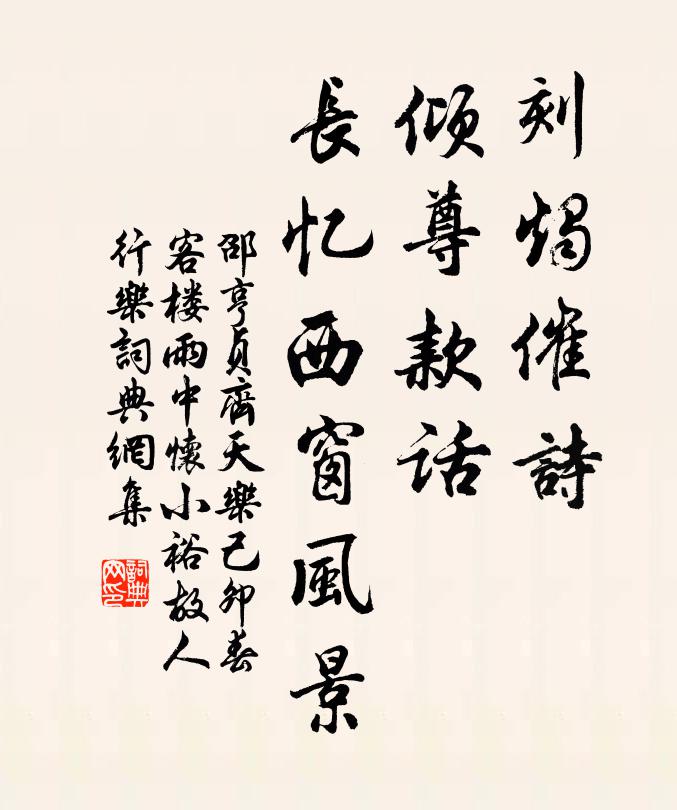 刻燭催詩
傾尊款話
長忆西窗風景
邵亨貞齊天樂己卯春
客楼雨中懷小裕故人
行樂詞典網集
詞典
网印